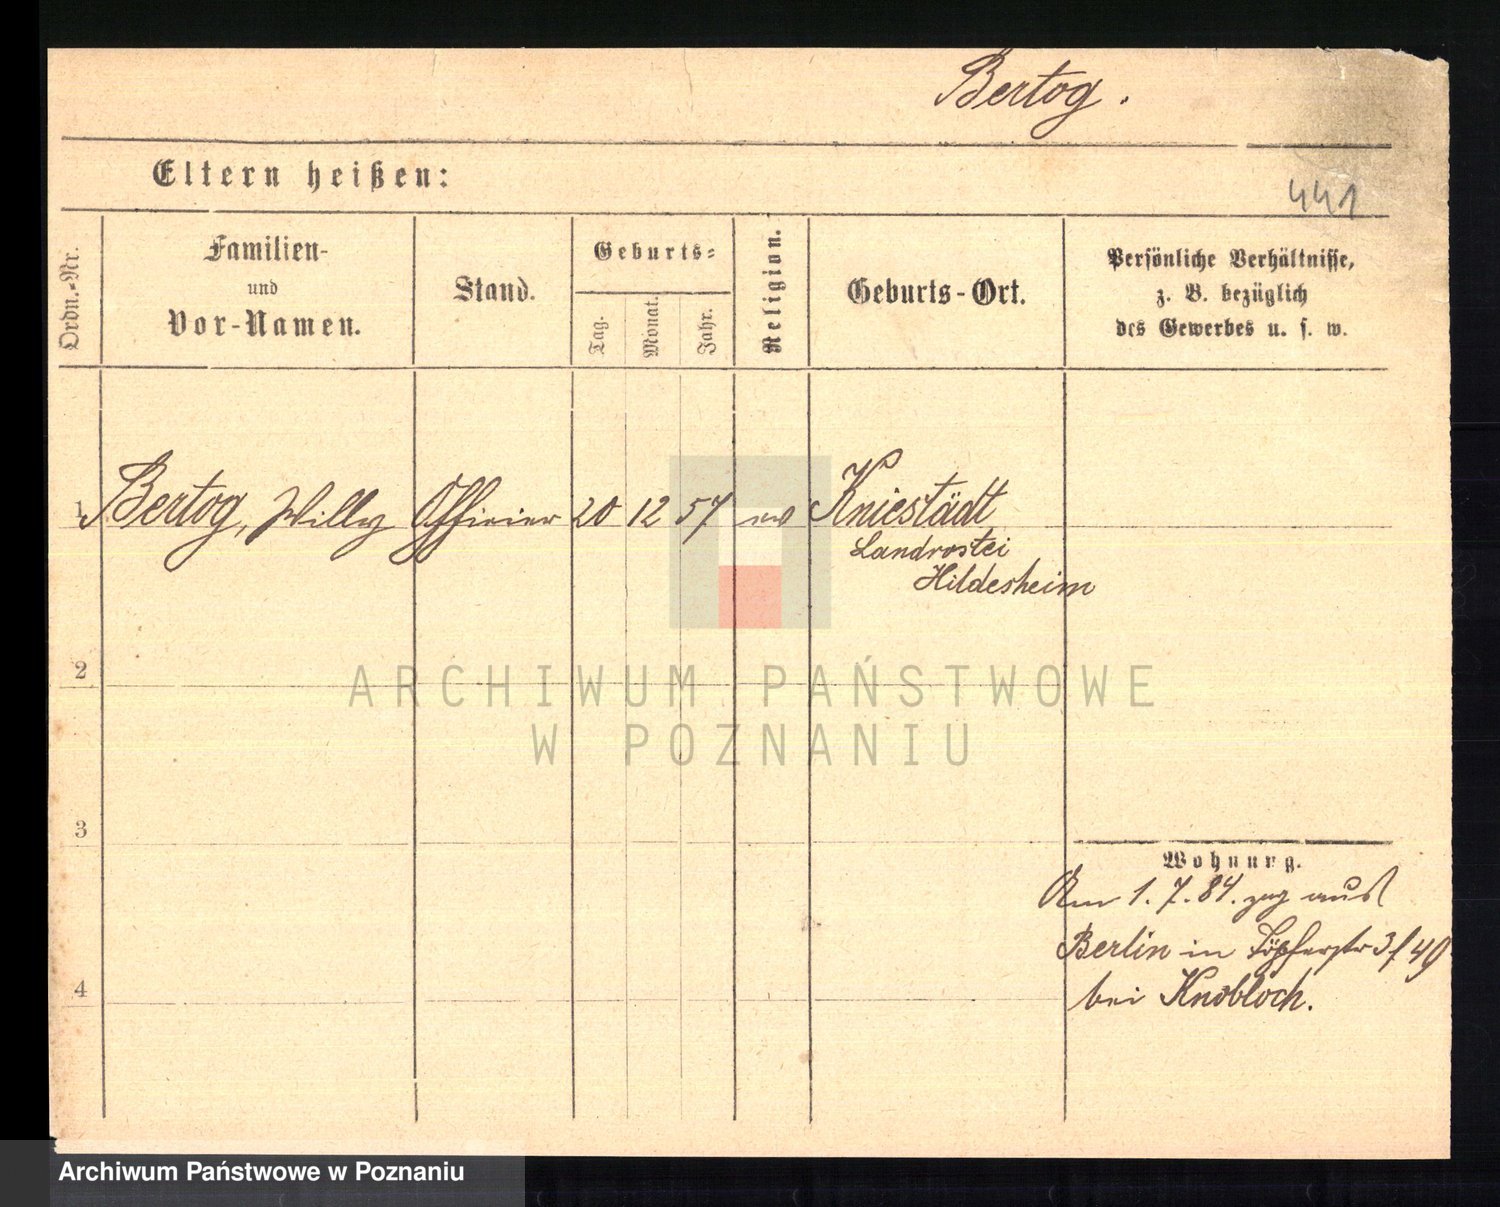 Bertog.
Eltern heißen:
441
Ordn.-Nr.
Familien-
und
Vor-Namen.
Stand.
Geburts-
Tag.
Monat.
Jahr.
Religion.
Geburts-Ort.
Persönliche Verhältnisse,
z. B. bezüglich
des Gewerbes u. s. w.
1 Bertog, Willy Offizier 20 12 57 ev Kniestädt
Landrostei
Hildesheim
2
ARCHIWUM PAŃSTWOWE
W POZNANIU
3
Wohnung.
Am 1.7.84. zog aus
Berlin in Töpferstr 3/49
bei Knobloch.
4
Archiwum Państwowe w Poznaniu